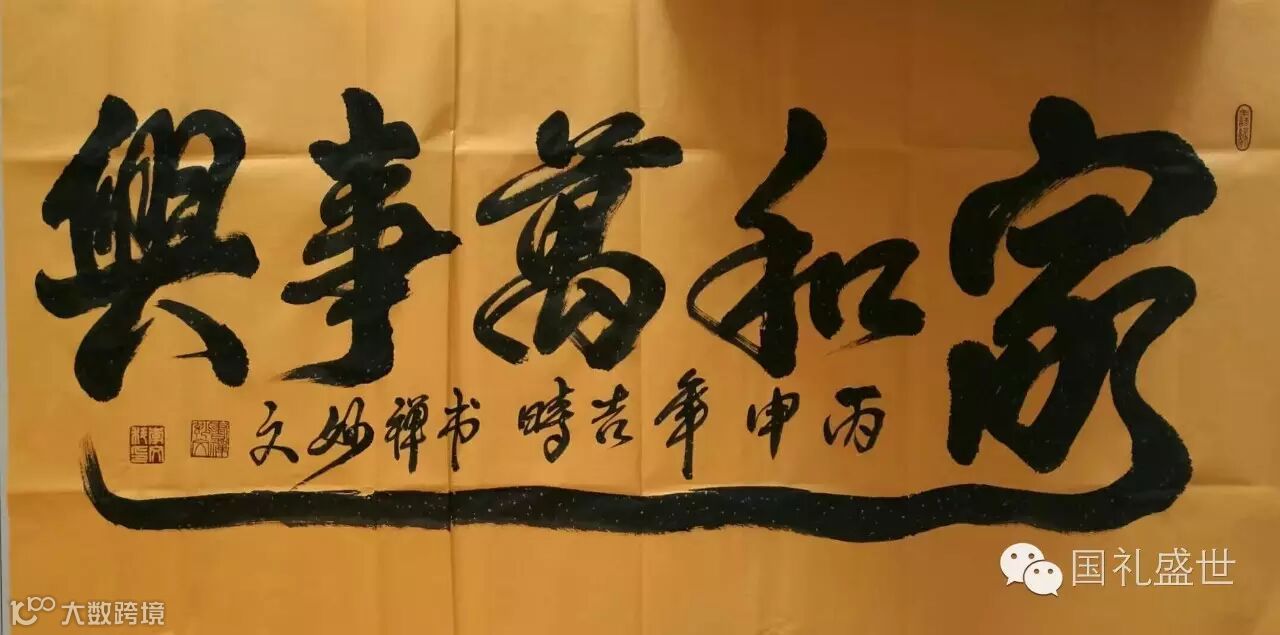 家和萬事興
丙申年吉時 书禅妙文
国礼盛世
大数跨境